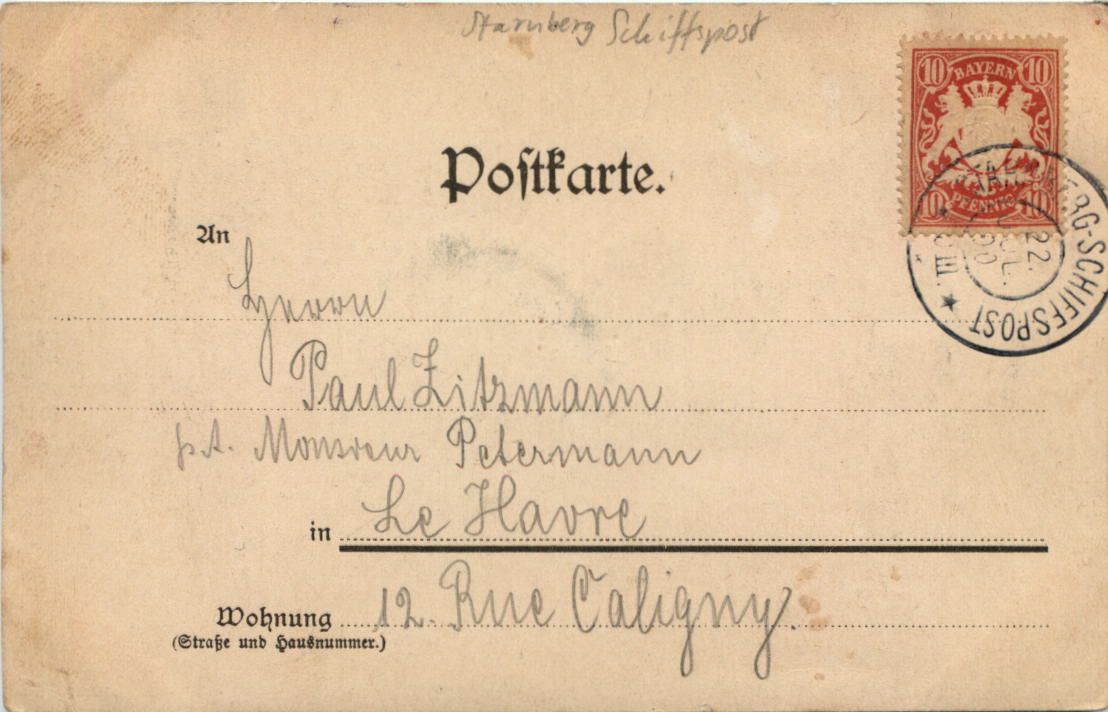 Starnberg Schiffspost
10 BAYERN 10
10 PFENNIG 10
STARNBERG-SCHIFFSPOST
22.
JUL.
00
III
Postkarte.
An
Herrn
Paul Zitzmann
p.A. Monsieur Petermann
in Le Havre
Wohnung 12. Rue Caligny.
(Straße und Hausnummer.)